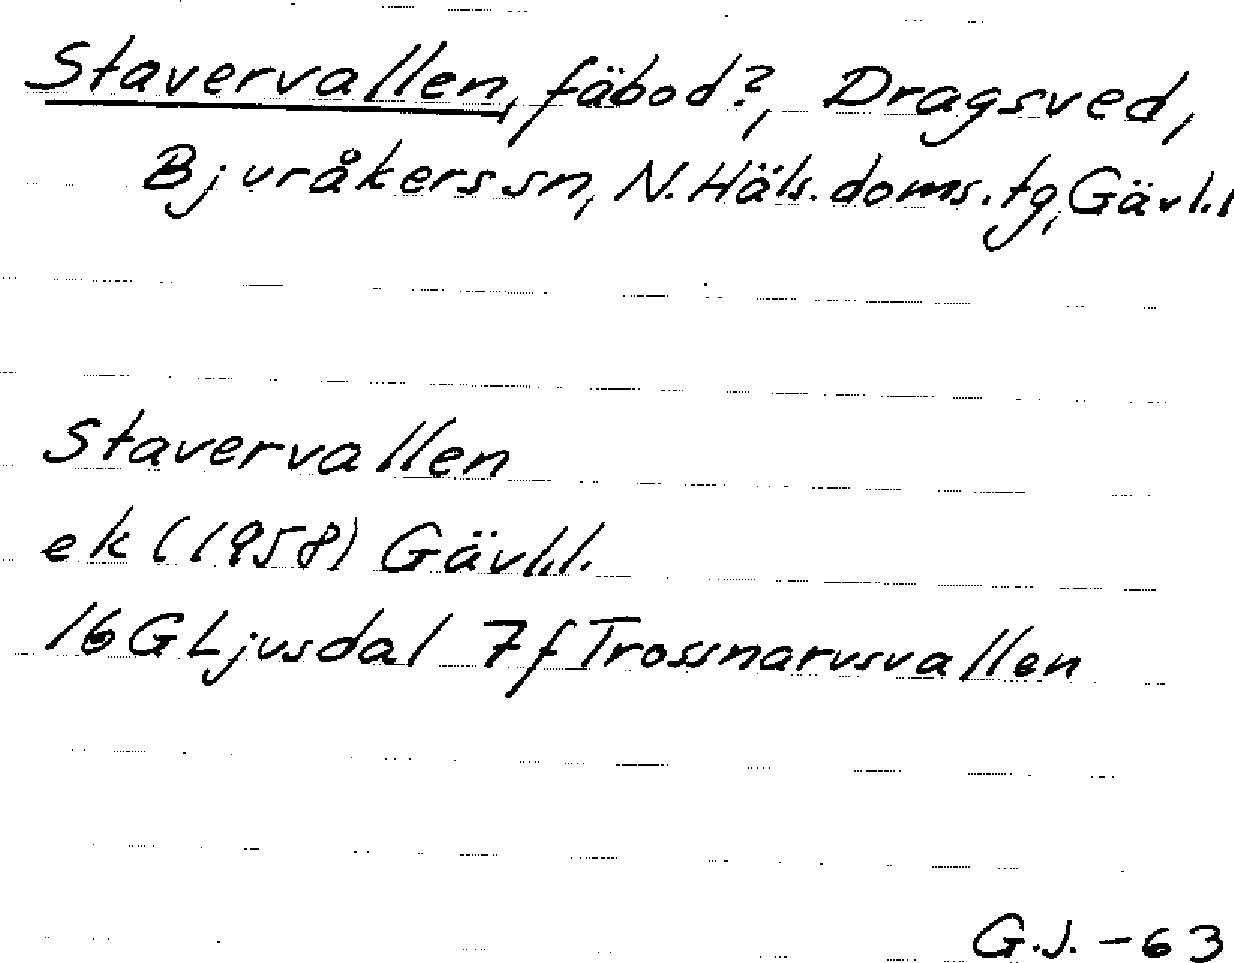 Stavervallen, fäbod?, Dragsved,
Bjuråkers sn, N. Häls. doms. tg, Gävl. l
Stavervallen
ek (1958) Gävl. l.
16 G Ljusdal 7 f Trossnarvsvallen
G. J. - 63